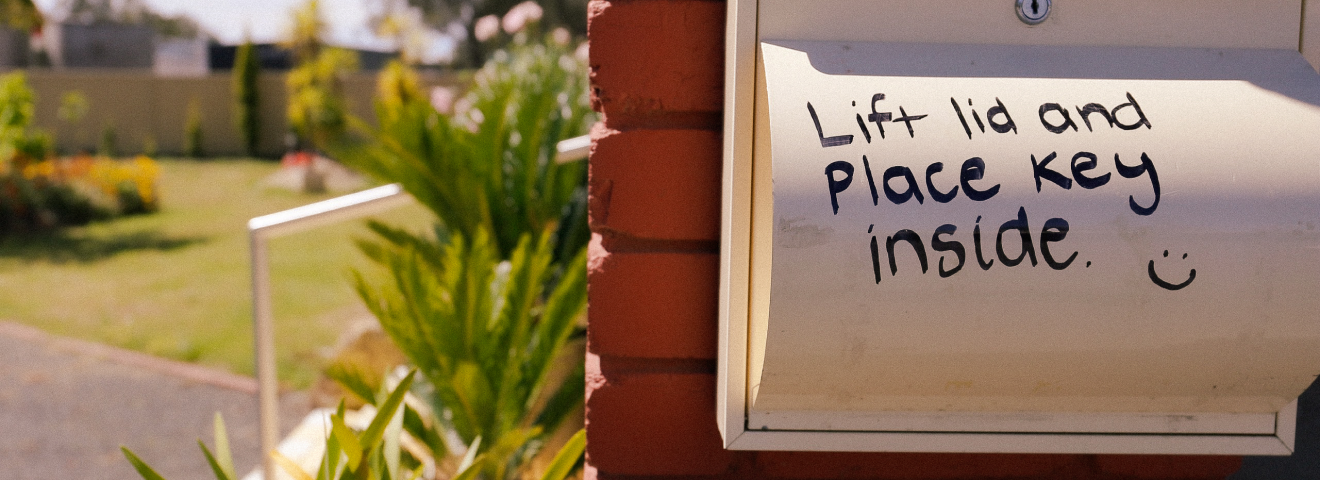 Lift lid and
Place Key
inside. :)